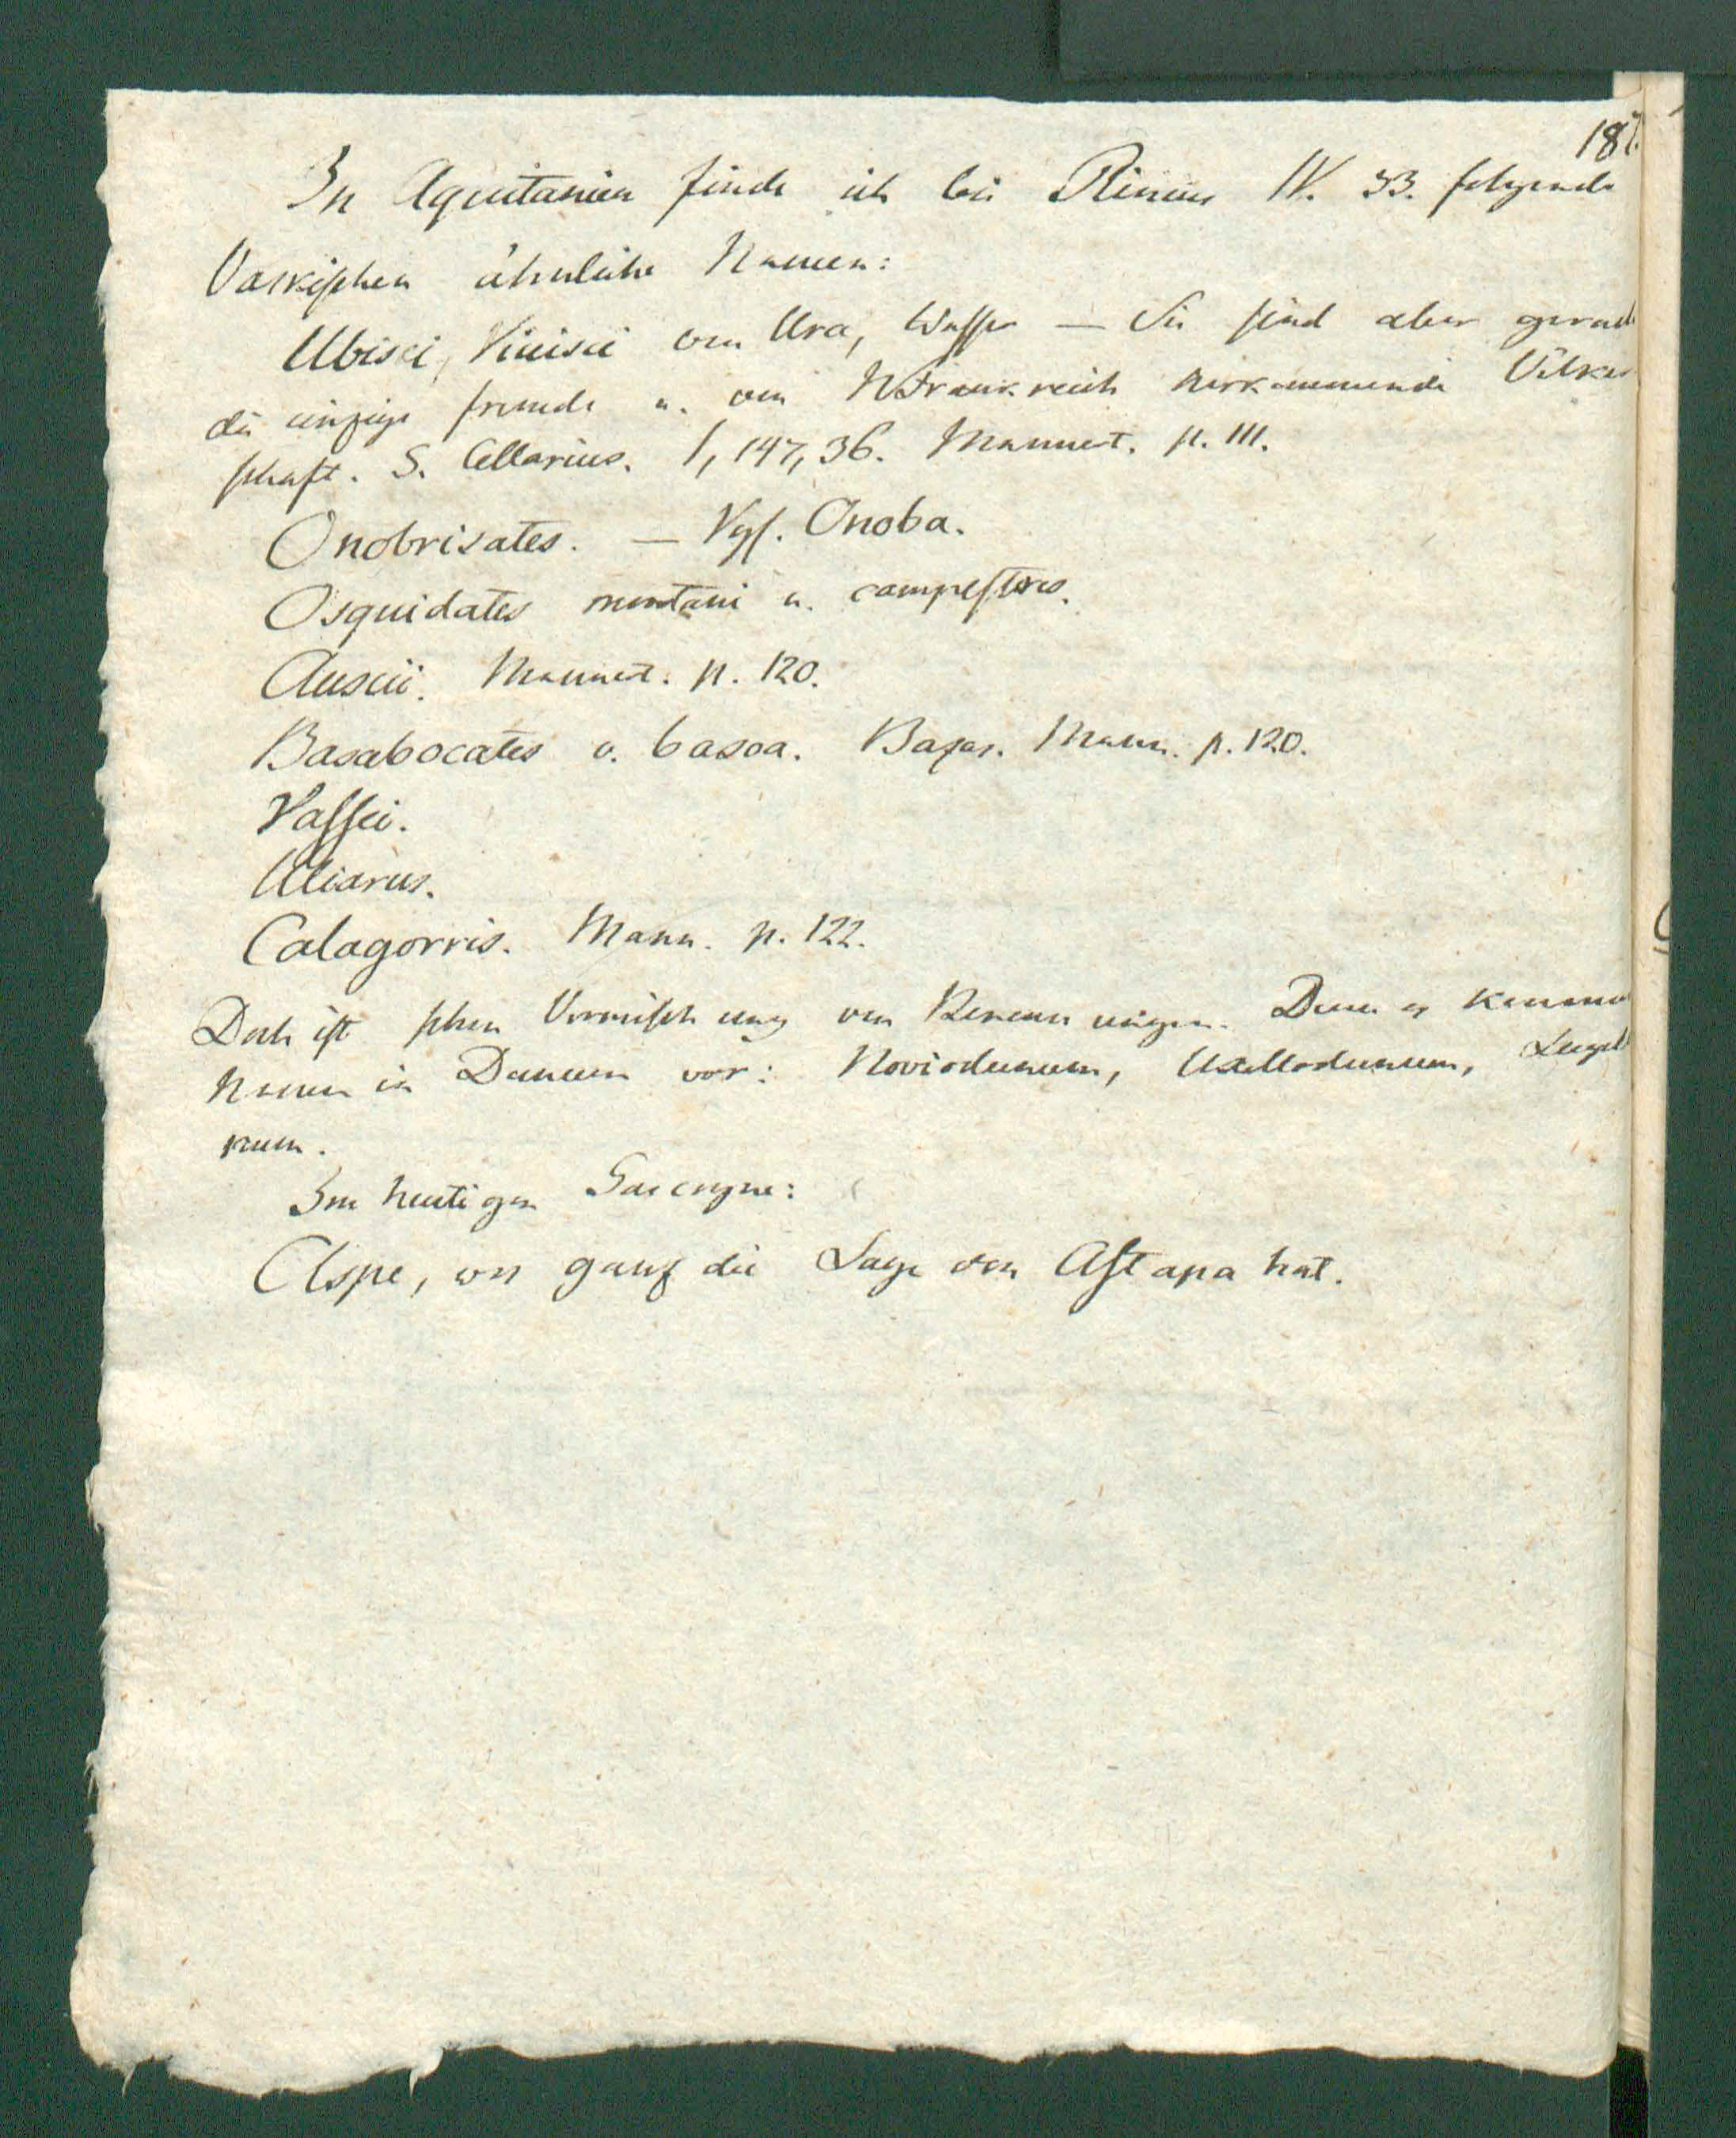 187.
In Aquitanien finde ich bei Plinius IV. 33. folgende
Vaskischen ähnliche Namen:
Ubisci, Vivisci von Ura, Wasser — Sie sind aber gerade
die einzige fremde u. von NFrankreich herkommende Völker
schaft. S. Cellarius. 1, 147, 36. Mannert. p. 111.
Onobrisates. — Vgl. Onoba.
Osquidates montani u. campestres.
Auscii. Mannert. p. 120.
Basabocates v. basoa. Bazas. Mann. p. 120.
Vassei.
Uliarus.
Calagorris. Mann. p. 122.
Doch ist schon Vermischung von Benennungen. Denn es kommen
Namen in Dunum vor: Noviodunum, Uxellodunum, Lugdu
num.
Im heutigen Gascogne:
Aspe, wo ganz die Lage von Astapa hat.